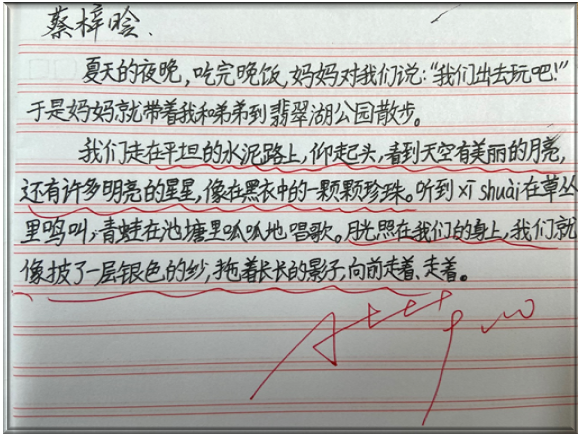 蔡梓晗.
夏天的夜晚,吃完晚饭,妈妈对我们说:“我们出去玩吧!”
于是妈妈就带着我和弟弟到翡翠湖公园散步。
我们走在平坦的水泥路上,仰起头,看到天空有美丽的月亮,
还有许多明亮的星星,像在黑衣中的一颗颗珍珠。听到xī shuài在草丛
里鸣叫,青蛙在池塘里呱呱地唱歌。月光照在我们的身上,我们就
像披了一层银色的纱,拖着长长的影子,向前走着、走着。